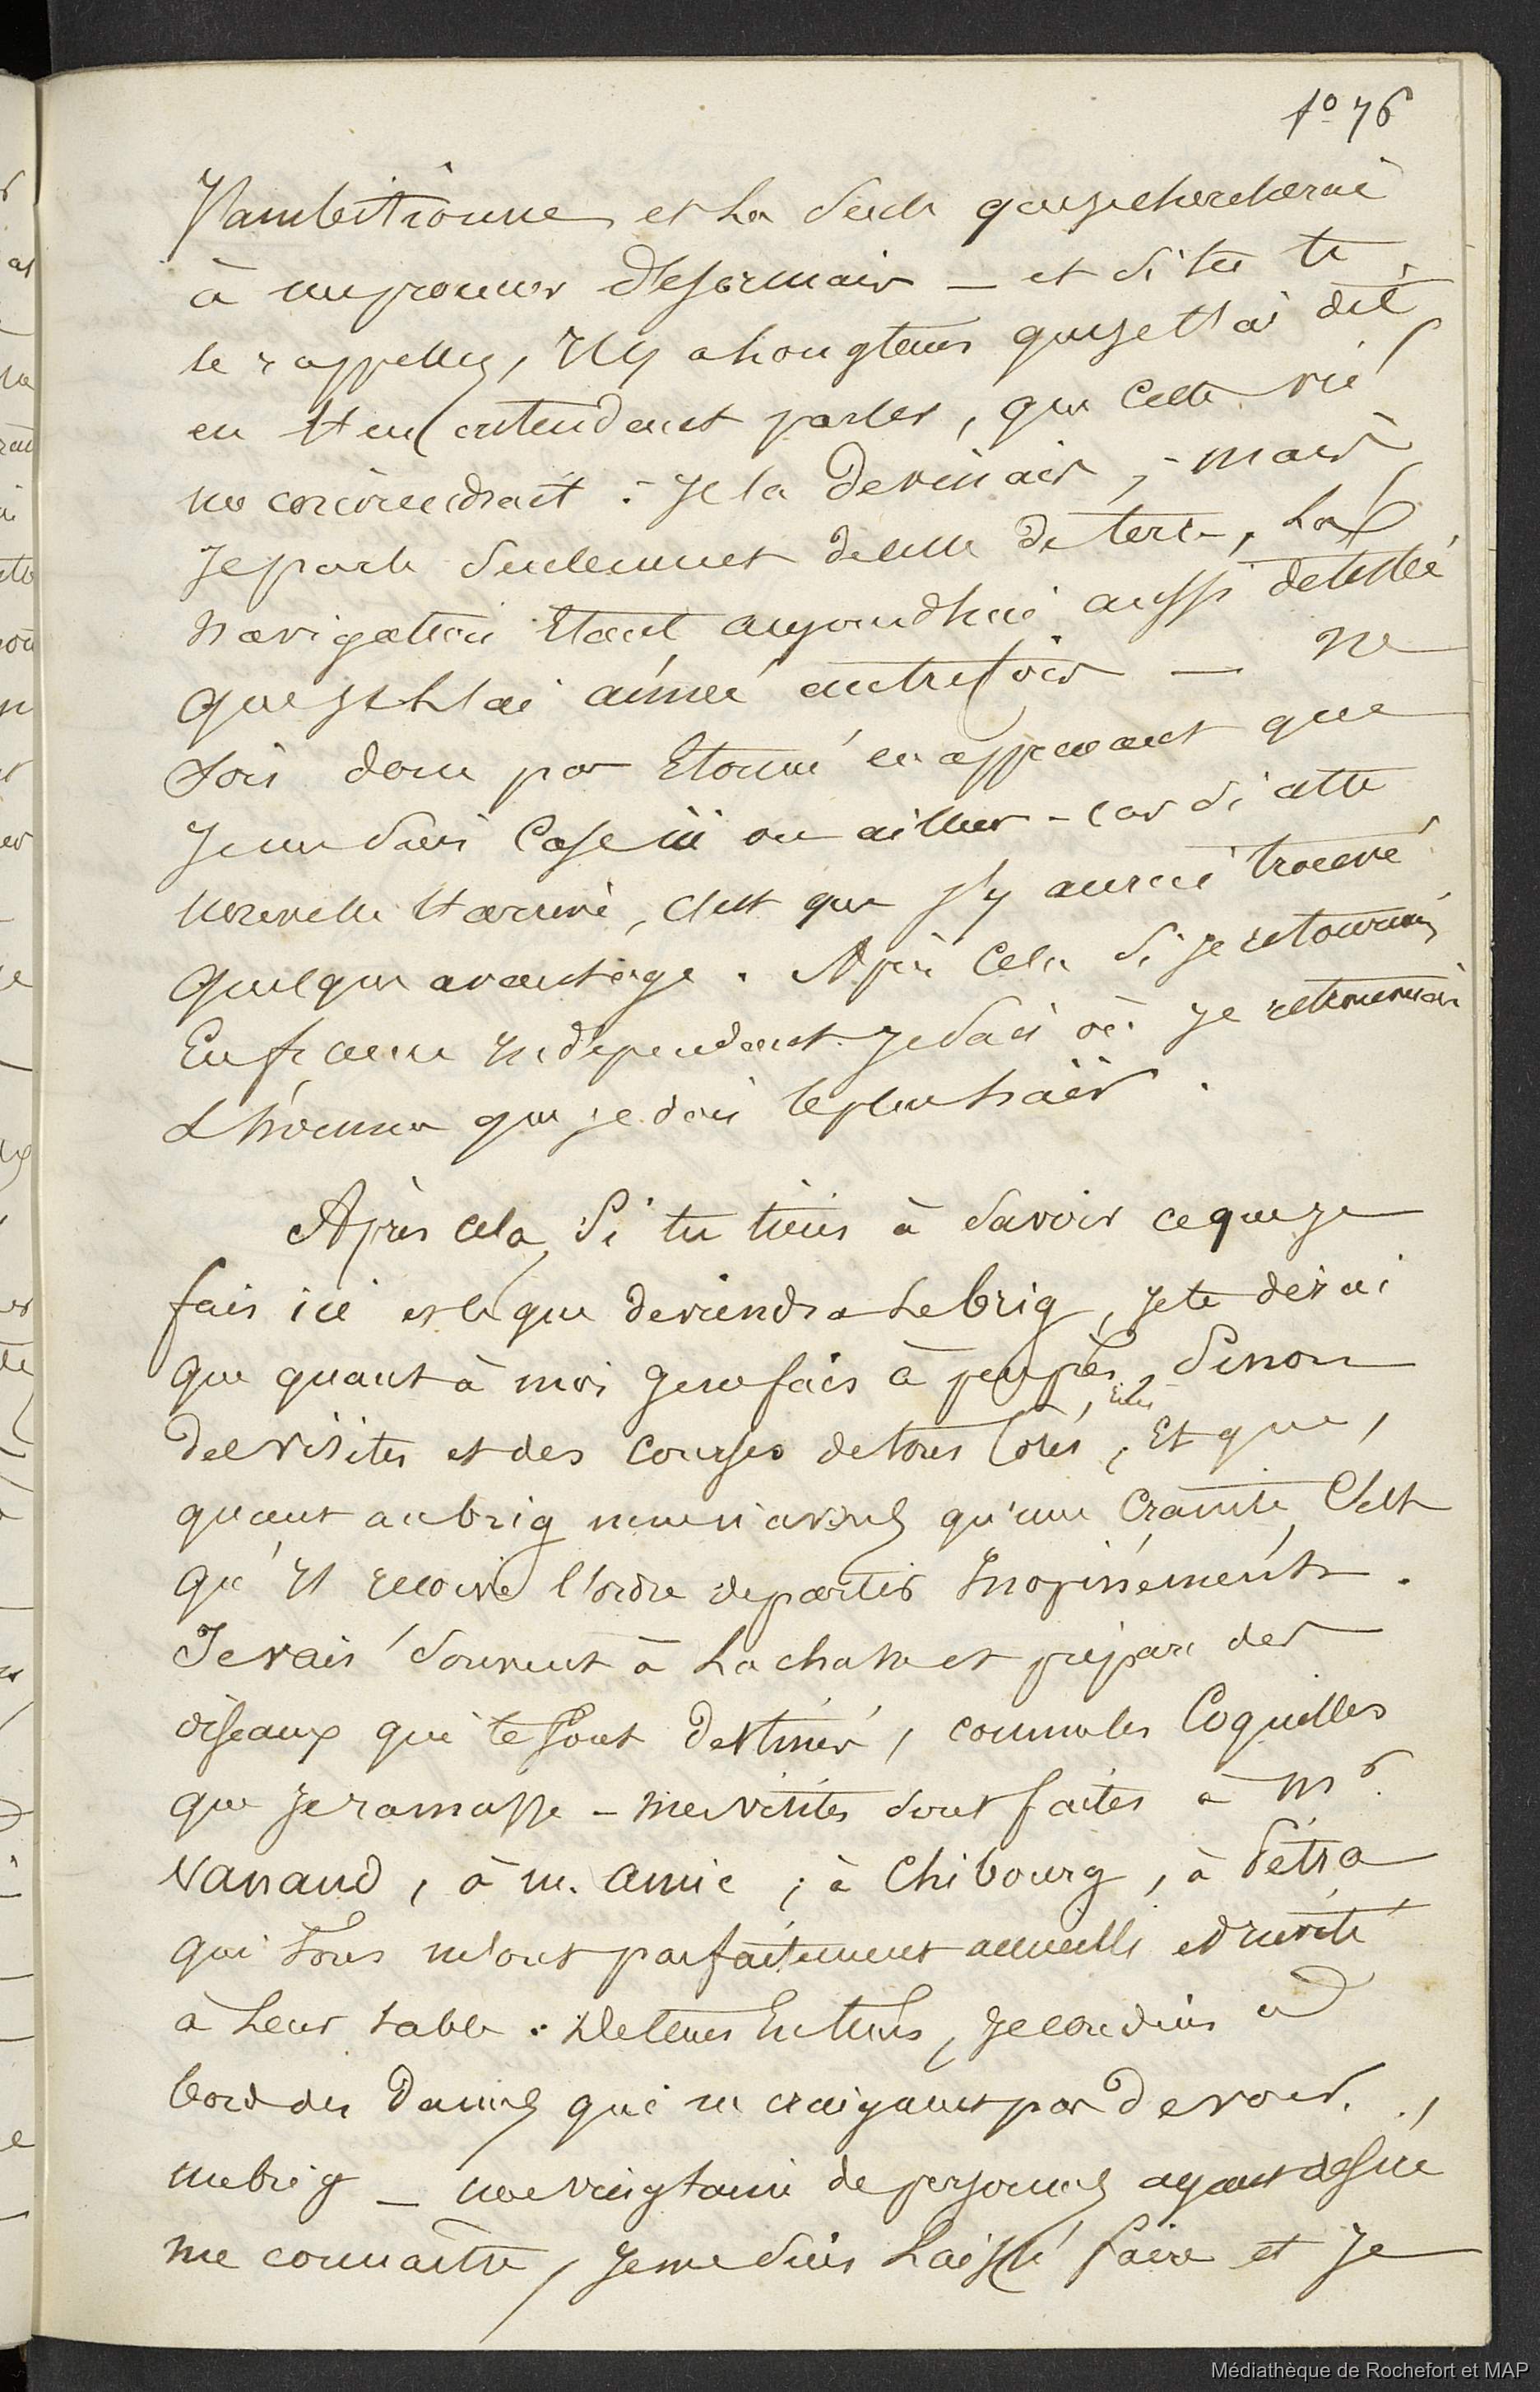 fo 76
J'ambitionne et la seule que je chercherai
à me procurer desormais — et si tu te
le rappelles, Il y a longtems que je t'ai dit,
en t'en entendant parler, que cette vie
me conviendrait : Je la devinais ; - mais
Je parle seulement de celle de terre, la
navigation étant aujourd'hui aussi detestée
que je l'ai aimée autrefois — ne
sois donc pas Etonné en apprenant que
Je me suis Casé ici ou ailleurs - Car si cette
nouvelle t'arrive, c'est que j'y aurai trouvé
quelque avantage. Après Cela si je retournais
En france Independant je sais où je retrouverais
L'homme que je dois le plus haïr.
Après cela, Si tu tiens à savoir ce que je
fais ici et ce que deviendra Le brig, je te dirai
que quant à moi je ne fais à peu près rien, Sinon
des visites et des Courses de tous Cotés, Et que,
quant au brig nous n'avons qu'une Crainte, C'est
qu'Il recoive l'ordre de partir Inopinément.
Je vais souvent à La chasse et prépare des
oiseaux qui te sont destinés, comme les Coquilles
que Je ramasse - mes visites sont faites à Mr.
Vanaud, à m. amic, à Chibourg, à Pétra
qui Tous m'ont parfaitement accueilli et invité
à Leur table. De tems En tems, Je conduis à
bord des Dames qui ne craignent pas de voir
un brig — une vingtaine de personnes ayant desiré
me connaître, Je me suis Laissé faire et Je
Médiathèque de Rochefort et MAP